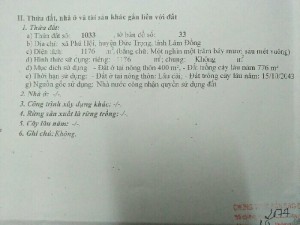 II. Thửa đất, nhà ở và tài sản khác gắn liền với đất
1. Thửa đất:
a) Thửa đất số: 1033 , tờ bản đồ số: 33
b) Địa chỉ: xã Phú Hội, huyện Đức Trọng, tỉnh Lâm Đồng
c) Diện tích: 1176 m², (bằng chữ: Một nghìn một trăm bảy mươi sáu mét vuông)
d) Hình thức sử dụng: riêng: 1176 m²; chung: Không m²
đ) Mục đích sử dụng: - Đất ở tại nông thôn 400 m², - Đất trồng cây lâu năm 776 m²
e) Thời hạn sử dụng: - Đất ở tại nông thôn: Lâu dài, - Đất trồng cây lâu năm: 15/10/2043
g) Nguồn gốc sử dụng: Nhà nước công nhận quyền sử dụng đất
2. Nhà ở: -/-.
3. Công trình xây dựng khác: -/-.
4. Rừng sản xuất là rừng trồng: -/-.
5. Cây lâu năm: -/-.
6. Ghi chú: Không.